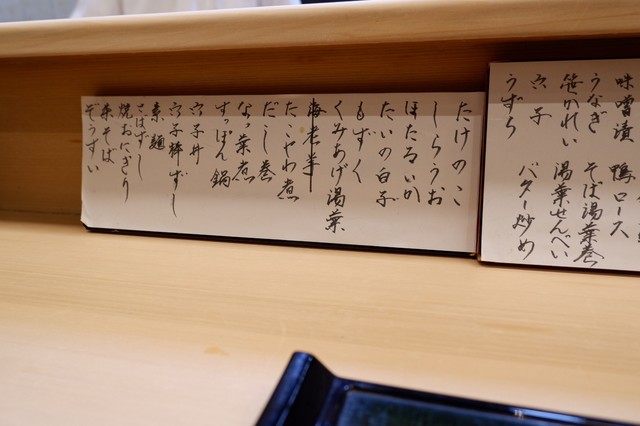 味噌漬 鴨ロース
うなぎ そば湯葉巻
笹かれい 湯葉せんべい
穴子 バター炒め
うずら
たけのこ
しらうお
ほたるいか
たいの白子
もずく
くみあげ湯葉
海老芋
たこやわ煮
だし巻
なっ葉煮
すっぽん鍋
穴子丼
穴子棒ずし
素麺
さばずし
焼おにぎり
茶そば
ぞうすい